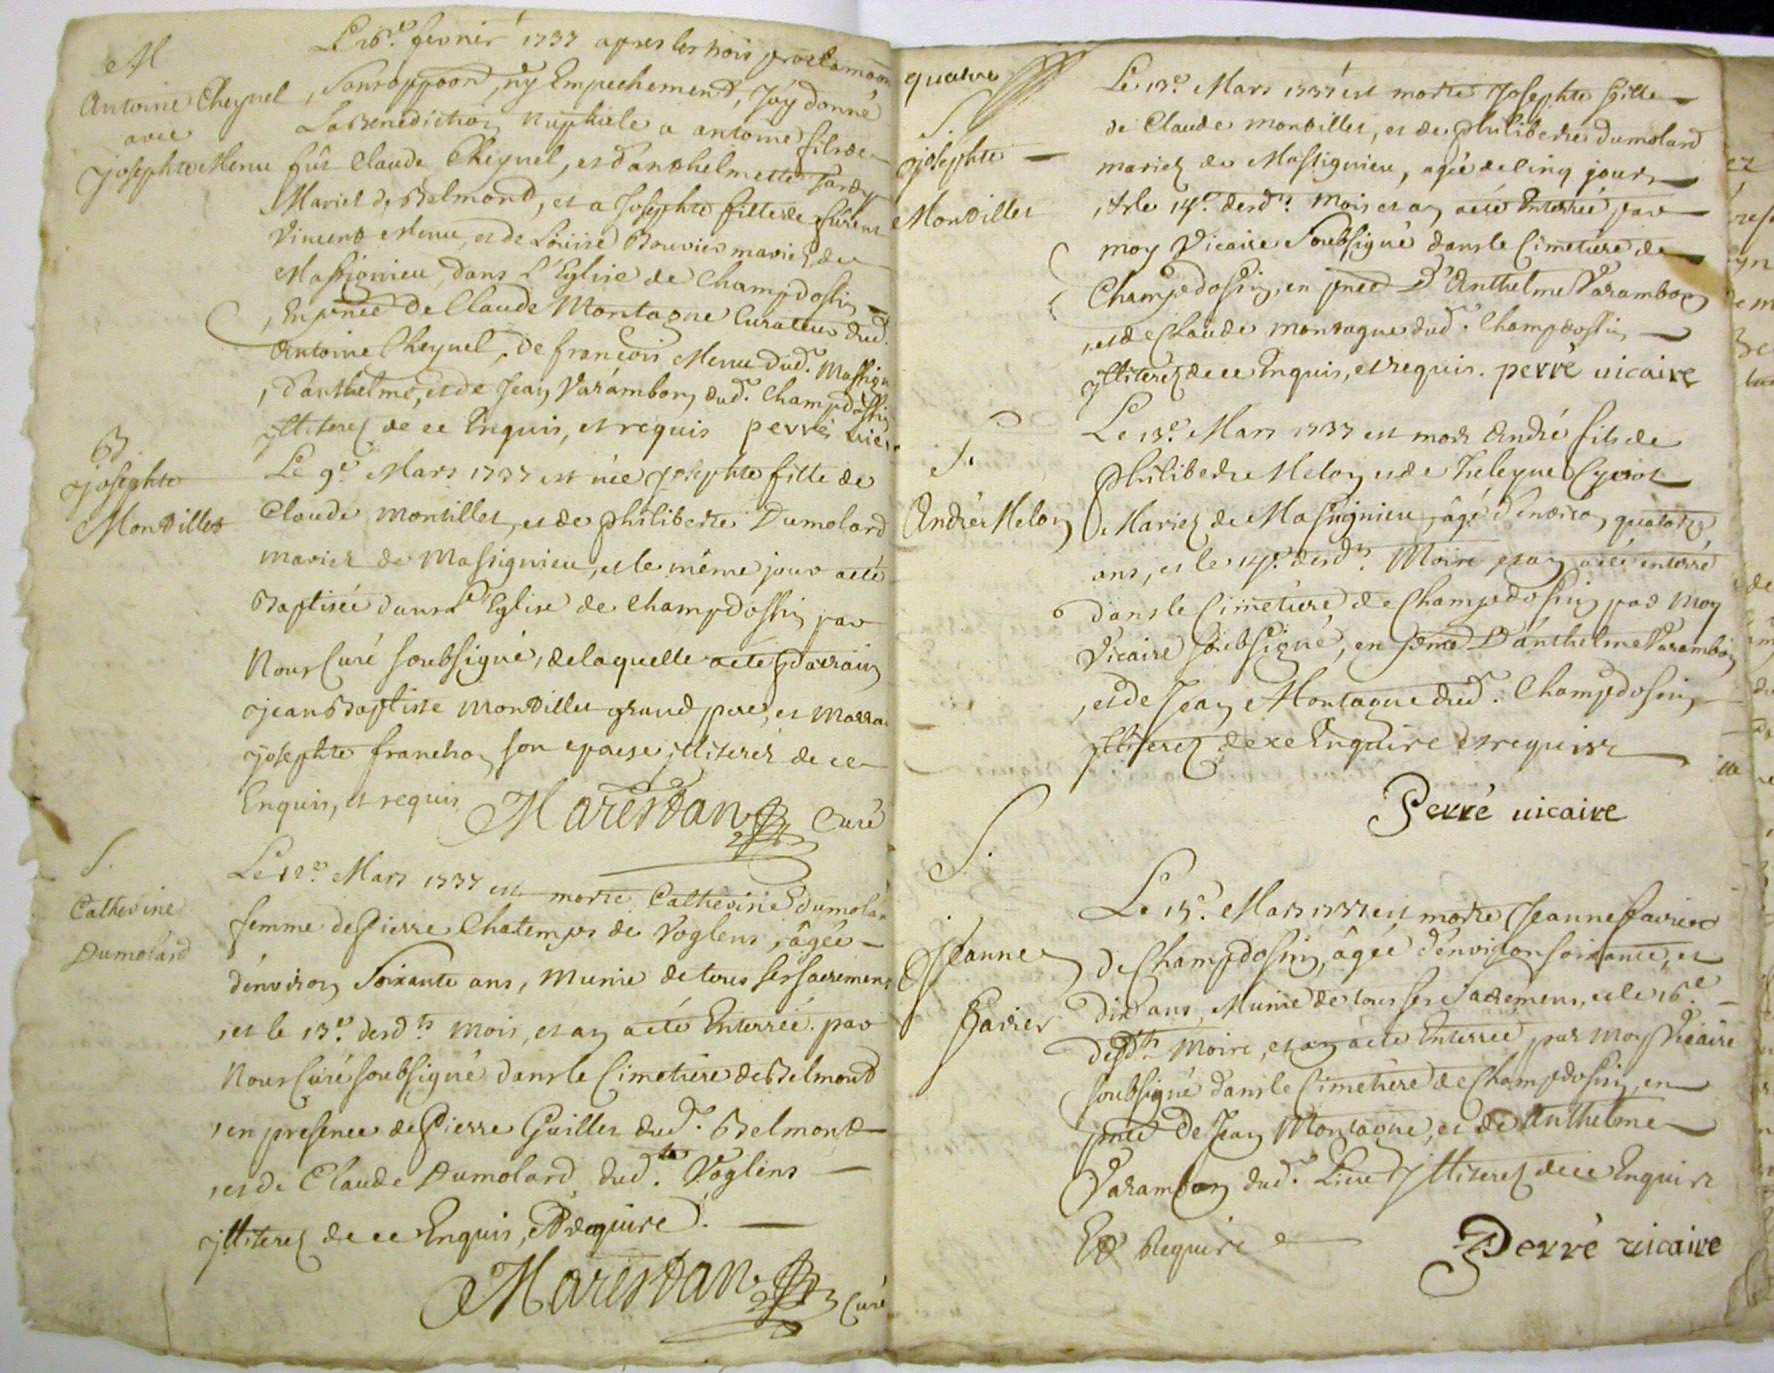 M
Antoine Cheynel
avec
Josephte Menu
Le 26e. fevrier 1737 apres les trois proclamaon
, sans oppoon, ny Empechement, J'ay donné
La Benediction Nuptiale a antoine fils de
fût Claude Cheynel, et d'anthelmette
Mariez de Belmond, et a Josephte fille de fûrent
Vincent Menu, et de Louise Bouvier mariez de
Massignieu, dans L'Eglise de Champdossin
, En pnce de Claude Montagne Curateur dud.
Antoine Cheynel, de francois Menu dud. Massign
, d'anthelme, et de Jean Varambon dud. Champdossin
jlliterez de ce Enquis, et requis perré vice
B
josephte
Montillet
Le 9e. Mars 1737 est née josephte fille de
Claude montillet, et de philiberte Dumolard
mariez de Massignieu, et le même jour a eté
Baptisée dans L'Eglise de Champdossin par
Nous Curé soubsigné, de laquelle a eté parrain
jean Baptiste montillet grand pere, et marra
josephte franchon son epouse jlliterez de ce
Enquis, et requis Marestan Curé
S.
Catherine
Dumolard
Le 12e. Mars 1737 est morte Catherine Dumolar
femme de Pierre Chatemps de Voglens, âgée
d'environ Soixante ans, munie de tous ses sacremens
, et le 13e. desdts mois, et an a eté Enterrée par
Nous Curé soubsigné dans le Cimetiere de Belmond
, en presence de Pierre Guillet dud. Belmond
, et de Claude Dumolard dud. Voglens
jlliterez de ce Enquis, et Require.
Marestan Curé
quatre
S.
josephte
Montillet
Le 13e. Mars 1737 est morte Josephte fille
de Claude montillet, et de philiberte Dumolard
mariez de Massignieu, agée de cinq jours
, et le 14e. desdts. Mois et an a eté Enterrée par
moy Vicaire Soubsigné dans le Cimetiere de
Champdossin, en pnce D'Anthelme Varambon
, et de Claude montagne dud. Champdossin
jlliterez de ce Enquis, et requis. perré vicaire
S.
André Melon
Le 13e. Mars 1737 est mort André fils de
philiberte Melon et de
Mariez de Massignieu, âgé d'environ quatorze
ans, et le 14e. desdts. Moire et an a eté enterré
dans le Cimetiere de Champdossin par moy
Vicaire soubsigné, en pnce D'anthelme Varambon
, et de Jean Montagne dud. Champdosin
jlliterez de ce Enquire et requisr
Perré vicaire
S.
Jeanne
Favier
Le 15e. Mars 1737 est morte Jeanne favier
de Champdosin, âgée d'environ soixante, et
dix ans, Munie de tous ses Sacremens, et le 16e
desdts Moire, et an a eté Enterrée par moy Vicaire
soubsigné dans le Cimetiere de Champdosin, en
pnce de Jean Montagne, et de Anthelme
Varambon dud. Lieu jlliterez de ce Enquisr
Et Require
Perré vicaire